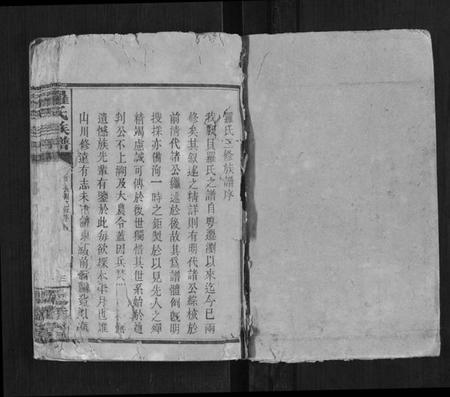 羅氏三修族譜序
羅氏之譜自粵遷瀏以來迄今已兩
修矣其叙述之精詳則有明代諸公綜核於
前清代諸公繼述於後故其為譜體例既明
搜採亦備洵一時之鉅製於以見先人之殫
精竭慮誠可傳於後世獨惜其世系始於通
判公不上溯及大農令蓋因兵燹
遺憾族先輩有鑒於此每欲探本
山川修遠有志未
羅氏族譜